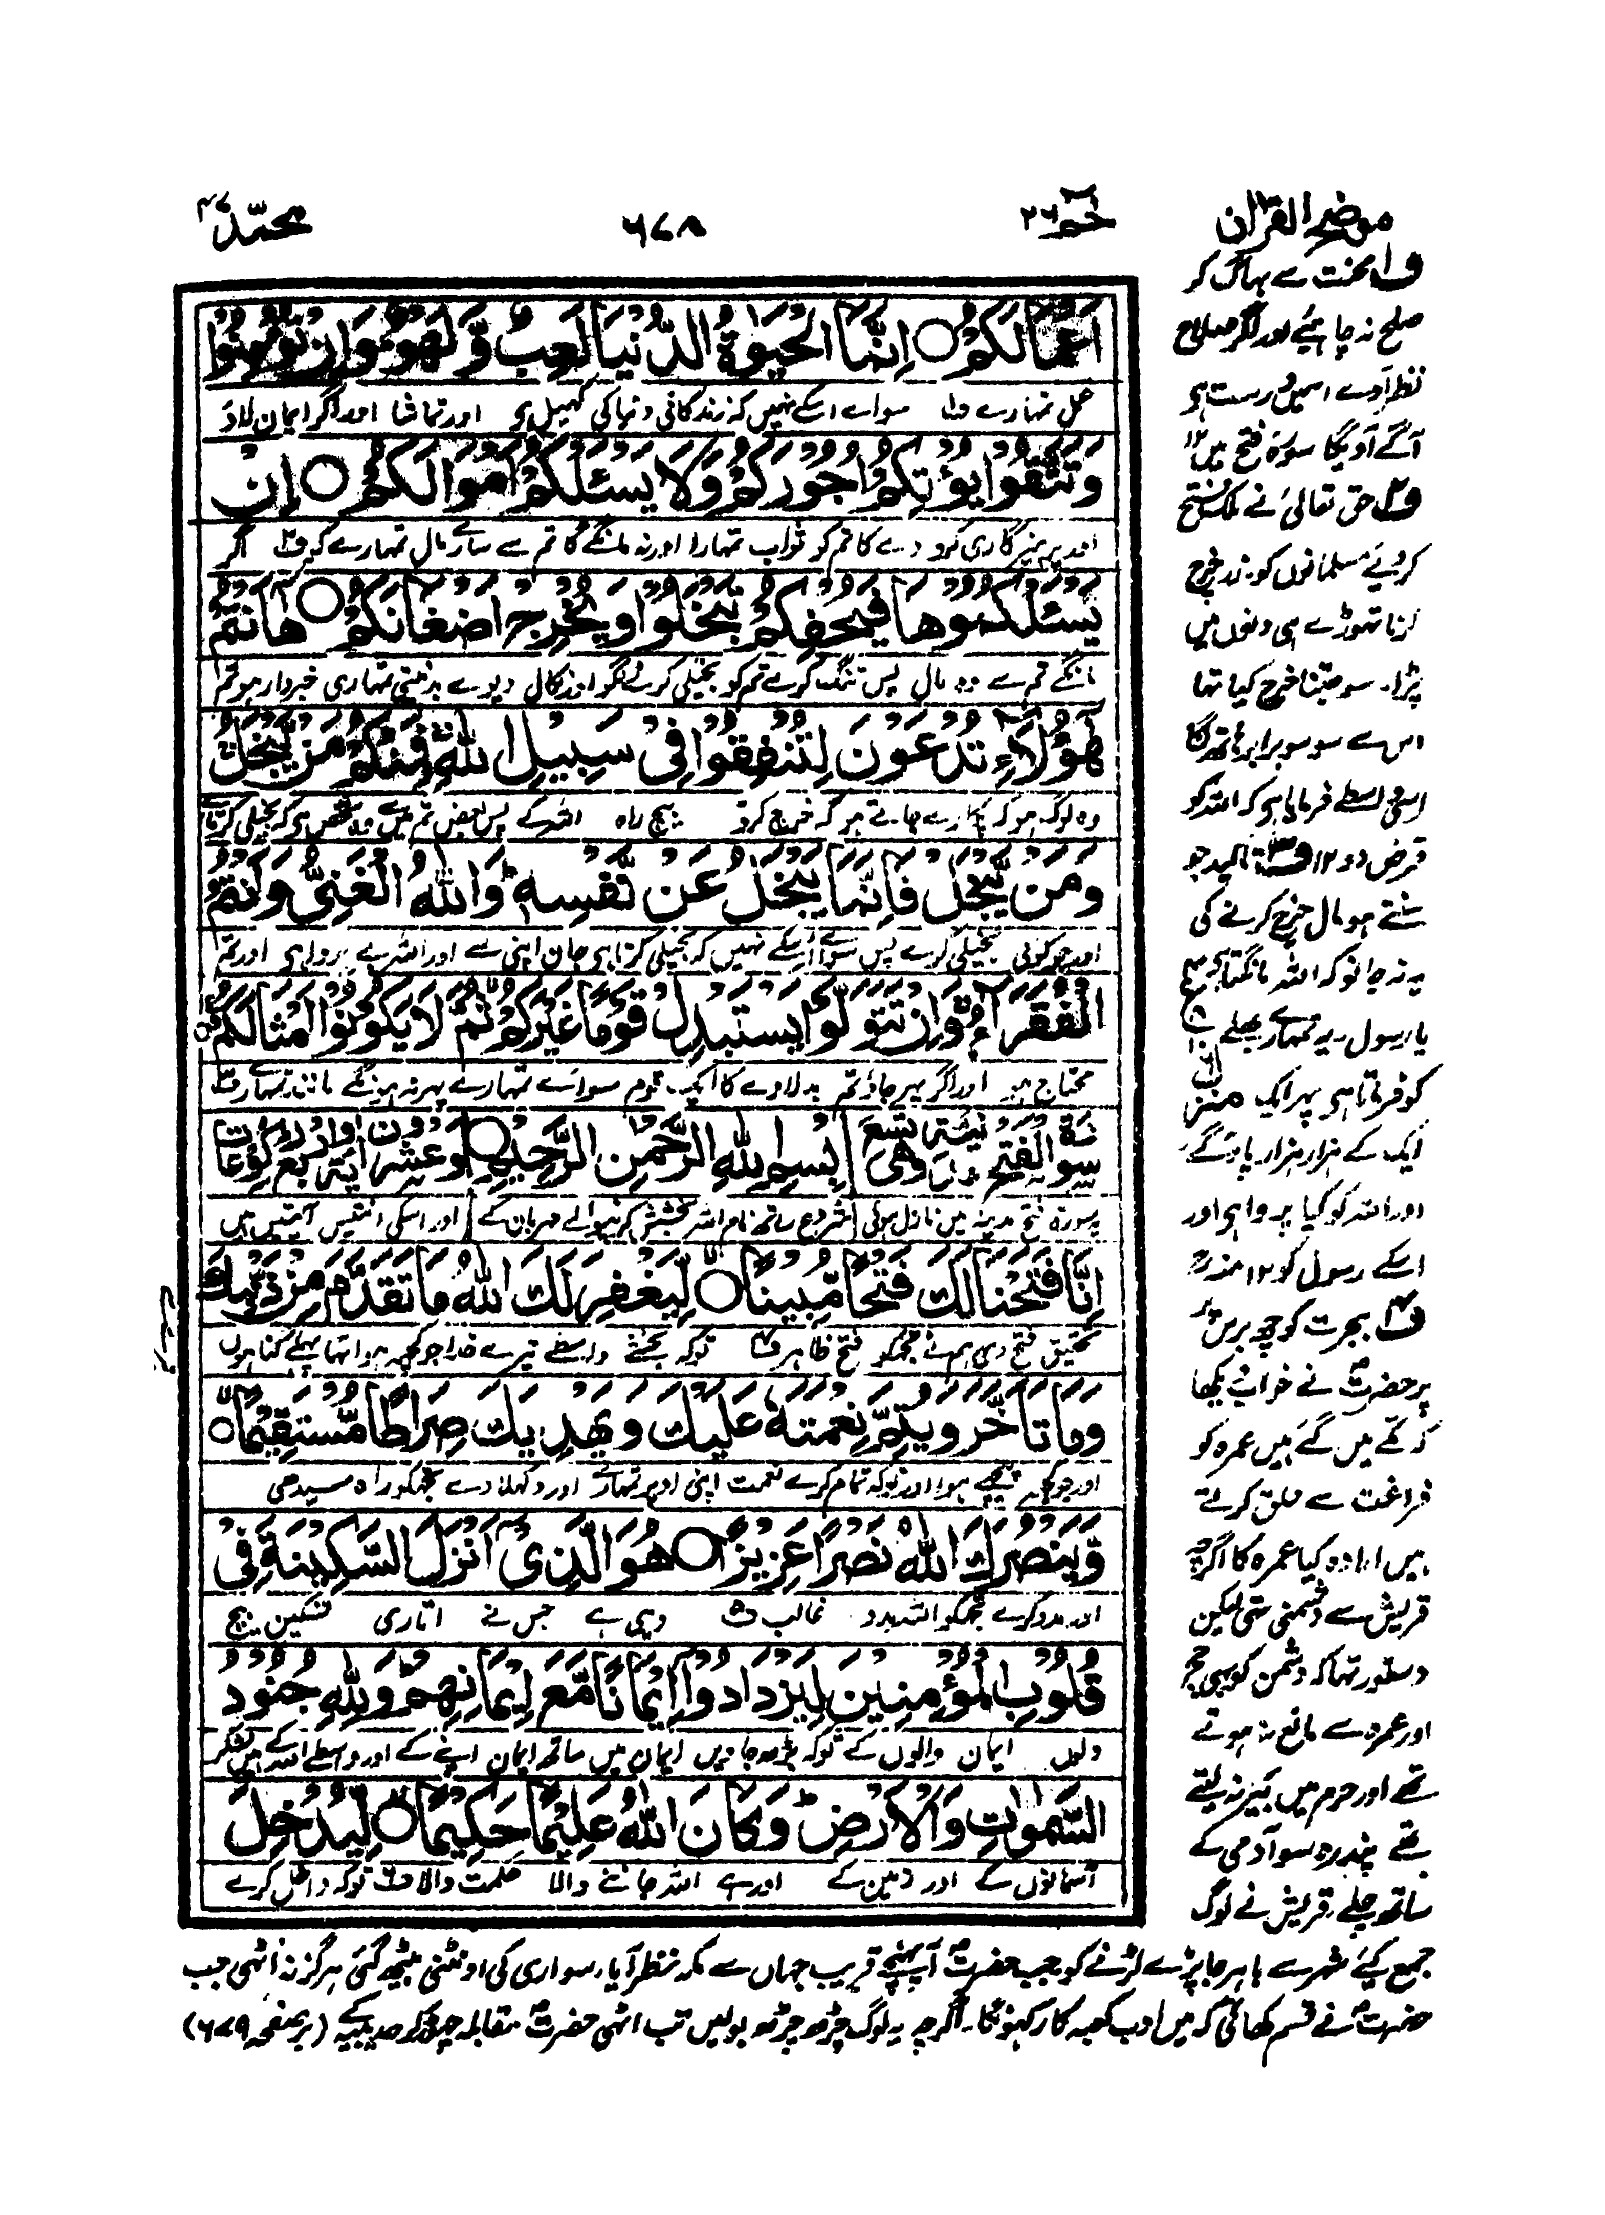 حٰمٓ ٢٦
٦٧٨
محمّد ٤٧
اَعْمَالَكُمْ ○ اِنَّمَا الْحَيٰوةُ الدُّنْيَا لَعِبٌ وَّ لَهْوٌ ۚ وَاِنْ تُؤْمِنُوْا
عمل تمہارے ف۱ سواے اسکے نہیں کہ زندگانی دنیا کی کھیل ہی اور تماشا اور اگر ایمان لاؤ
وَتَتَّقُوْا يُؤْتِكُمْ اُجُوْرَكُمْ وَلَا يَسْـَٔلْكُمْ اَمْوَالَكُمْ ○ اِنْ
اور پرہیزگاری کرو دے گا تم کو ثواب تمہارا اور نہ مانگے گا تم سے سارے مال تمہارے کو ف۲ اگر
يَّسْـَٔلْكُمُوْهَا فَيُحْفِكُمْ تَبْخَلُوْا وَيُخْرِجْ اَضْغَانَكُمْ ○ هٰٓاَنْتُمْ
مانگے تم سے وہ مال پس تنگ کرے تم کو بخیلی کرنے لگو اور نکال دیوے بدنیتی تمہاری خبردار ہو تم
هٰٓؤُلَآءِ تُدْعَوْنَ لِتُنْفِقُوْا فِيْ سَبِيْلِ اللّٰهِ ۚ فَمِنْكُمْ مَّنْ يَّبْخَلُ ۚ
وہ لوگ ہو کہ پکارے جاتے ہو کہ خرچ کرو بیچ راہ اللہ کے پس بعض تم میں سے وہ شخص ہی کہ بخیلی کرتا ہے
وَمَنْ يَّبْخَلْ فَاِنَّمَا يَبْخَلُ عَنْ نَّفْسِهٖ ؕ وَاللّٰهُ الْغَنِيُّ وَاَنْتُمُ
اور جو کوئی بخیلی کرے پس سواے اسکے نہیں کہ بخیلی کرتا ہی جان اپنی سے اور اللہ بے پروا ہی اور تم
الْفُقَرَآءُ ۚ وَاِنْ تَتَوَلَّوْا يَسْتَبْدِلْ قَوْمًا غَيْرَكُمْ ثُمَّ لَا يَكُوْنُوْٓا اَمْثَالَكُمْ ○
محتاج ہو اور اگر پھر جاؤ تم بدلا دے گا ایک قوم سواے تمہارے پھر نہ ہوں گے مانند تمہارے ف۳
سُوْرَةُ الْفَتْحِ مَدَنِيَّةٌ وَهِيَ تِسْعٌ بِسْمِ اللّٰهِ الرَّحْمٰنِ الرَّحِيْمِ ○ وَعِشْرُوْنَ اٰيَةً وَاَرْبَعُ رُكُوْعَاتٍ
یہ سورۃ فتح مدینہ میں نازل ہوئی شروع ساتھ نام اللہ بخشش کرنیوالے مہربان کے اور اسکی انتیس آیتیں ہیں
اِنَّا فَتَحْنَا لَكَ فَتْحًا مُّبِيْنًا ○ لِّيَغْفِرَ لَكَ اللّٰهُ مَا تَقَدَّمَ مِنْ ذَنْبِكَ
تحقیق فتح دی ہم نے تجھکو فتح ظاہر ف۴ توکہ بخشے واسطے تیرے خدا جو کچھ ہوا تھا پہلے گناہوں
وَمَا تَاَخَّرَ وَيُتِمَّ نِعْمَتَهٗ عَلَيْكَ وَيَهْدِيَكَ صِرَاطًا مُّسْتَقِيْمًا ○
اور جو کچھ پیچھے ہوا اور توکہ تمام کرے نعمت اپنی اوپر تمہارے اور دکھلا دے تجھکو راہ سیدھی
وَّيَنْصُرَكَ اللّٰهُ نَصْرًا عَزِيْزًا ○ هُوَ الَّذِيْٓ اَنْزَلَ السَّكِيْنَةَ فِيْ
اور مدد کرے تجھکو اللہ مدد غالب ف۵ وہی ہے جس نے اتاری تسکین بیچ
قُلُوْبِ الْمُؤْمِنِيْنَ لِيَزْدَادُوْٓا اِيْمَانًا مَّعَ اِيْمَانِهِمْ ؕ وَلِلّٰهِ جُنُوْدُ
دلوں ایمان والوں کے توکہ بڑھ جاویں ایمان میں ساتھ ایمان اپنے کے اور واسطے اللہ کے ہیں لشکر
السَّمٰوٰتِ وَالْاَرْضِ ؕ وَكَانَ اللّٰهُ عَلِيْمًا حَكِيْمًا ○ لِّيُدْخِلَ
آسمانوں کے اور زمین کے اور ہے اللہ جاننے والا حکمت والا ف۶ توکہ داخل کرے
موضح القرآن
ف۱ محنت سے بھاگ کر
صلح نہ چاہئے اور اگر صلاح
نظر آوے اسمیں درست ہی
آگے آویگا سورۃ فتح میں ۱۲
ف۲ حق تعالیٰ نے ملک فتح
کر دئیے مسلمانوں کو زر خرچ
کرنا تھوڑے ہی دنوں میں
پڑا۔ سو جتنا خرچ کیا تھا
اس سے سو سو برابر ہاتھ لگا
اسی واسطے فرمایا ہی کہ اللہ کو
قرض دو ۱۲ ف۳ تاکید جو
سنتے ہو مال خرچ کرنے کی
یہ نہ جانو کہ اللہ مانگتا ہی
یا رسول۔ یہ تمہارے بھلے
کو فرماتا ہی پھر ایک
ایک کے ہزار ہزار پاؤگے
اور اللہ کو کیا پروا ہی اور
اسکے رسول کو ۱۲ منہ رح
ف۴ ہجرت کو چھ برس
پر حضرتؐ نے خواب دیکھا
کہ مکے میں گئے ہیں عمرہ کو
فراغت سے حلق کرتے
ہیں ارادہ کیا عمرہ کا اگرچہ
قریش سے دشمنی تھی لیکن
دستور تھا کہ دشمن کو بھی حج
اور عمرہ سے مانع نہ ہوتے
تھے اور حرم میں بیر نہ لیتے
تھے پندرہ سو آدمی کے
ساتھ چلے۔ قریش نے لوگ
جمع کیئے شہر سے باہر جا پڑے لڑنے کو جب حضرتؐ آپہنچے قریب جہاں سے مکہ نظر آیا۔ سواری کی اونٹنی بیٹھ گئی ہرگز نہ اٹھی جب
حضرتؐ نے قسم کھائی کہ میں ادب کعبہ کا رکھونگا۔ اگرچہ یہ لوگ چڑھ چڑھ بولیں تب اٹھی حضرتؐ مقابلہ چھوڑ کر حدیبیہ کے (برصفحہ ٦٧٩)